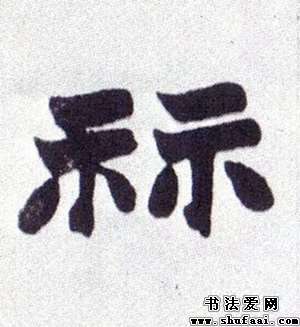 祘
书法爱网
www.shufaai.com